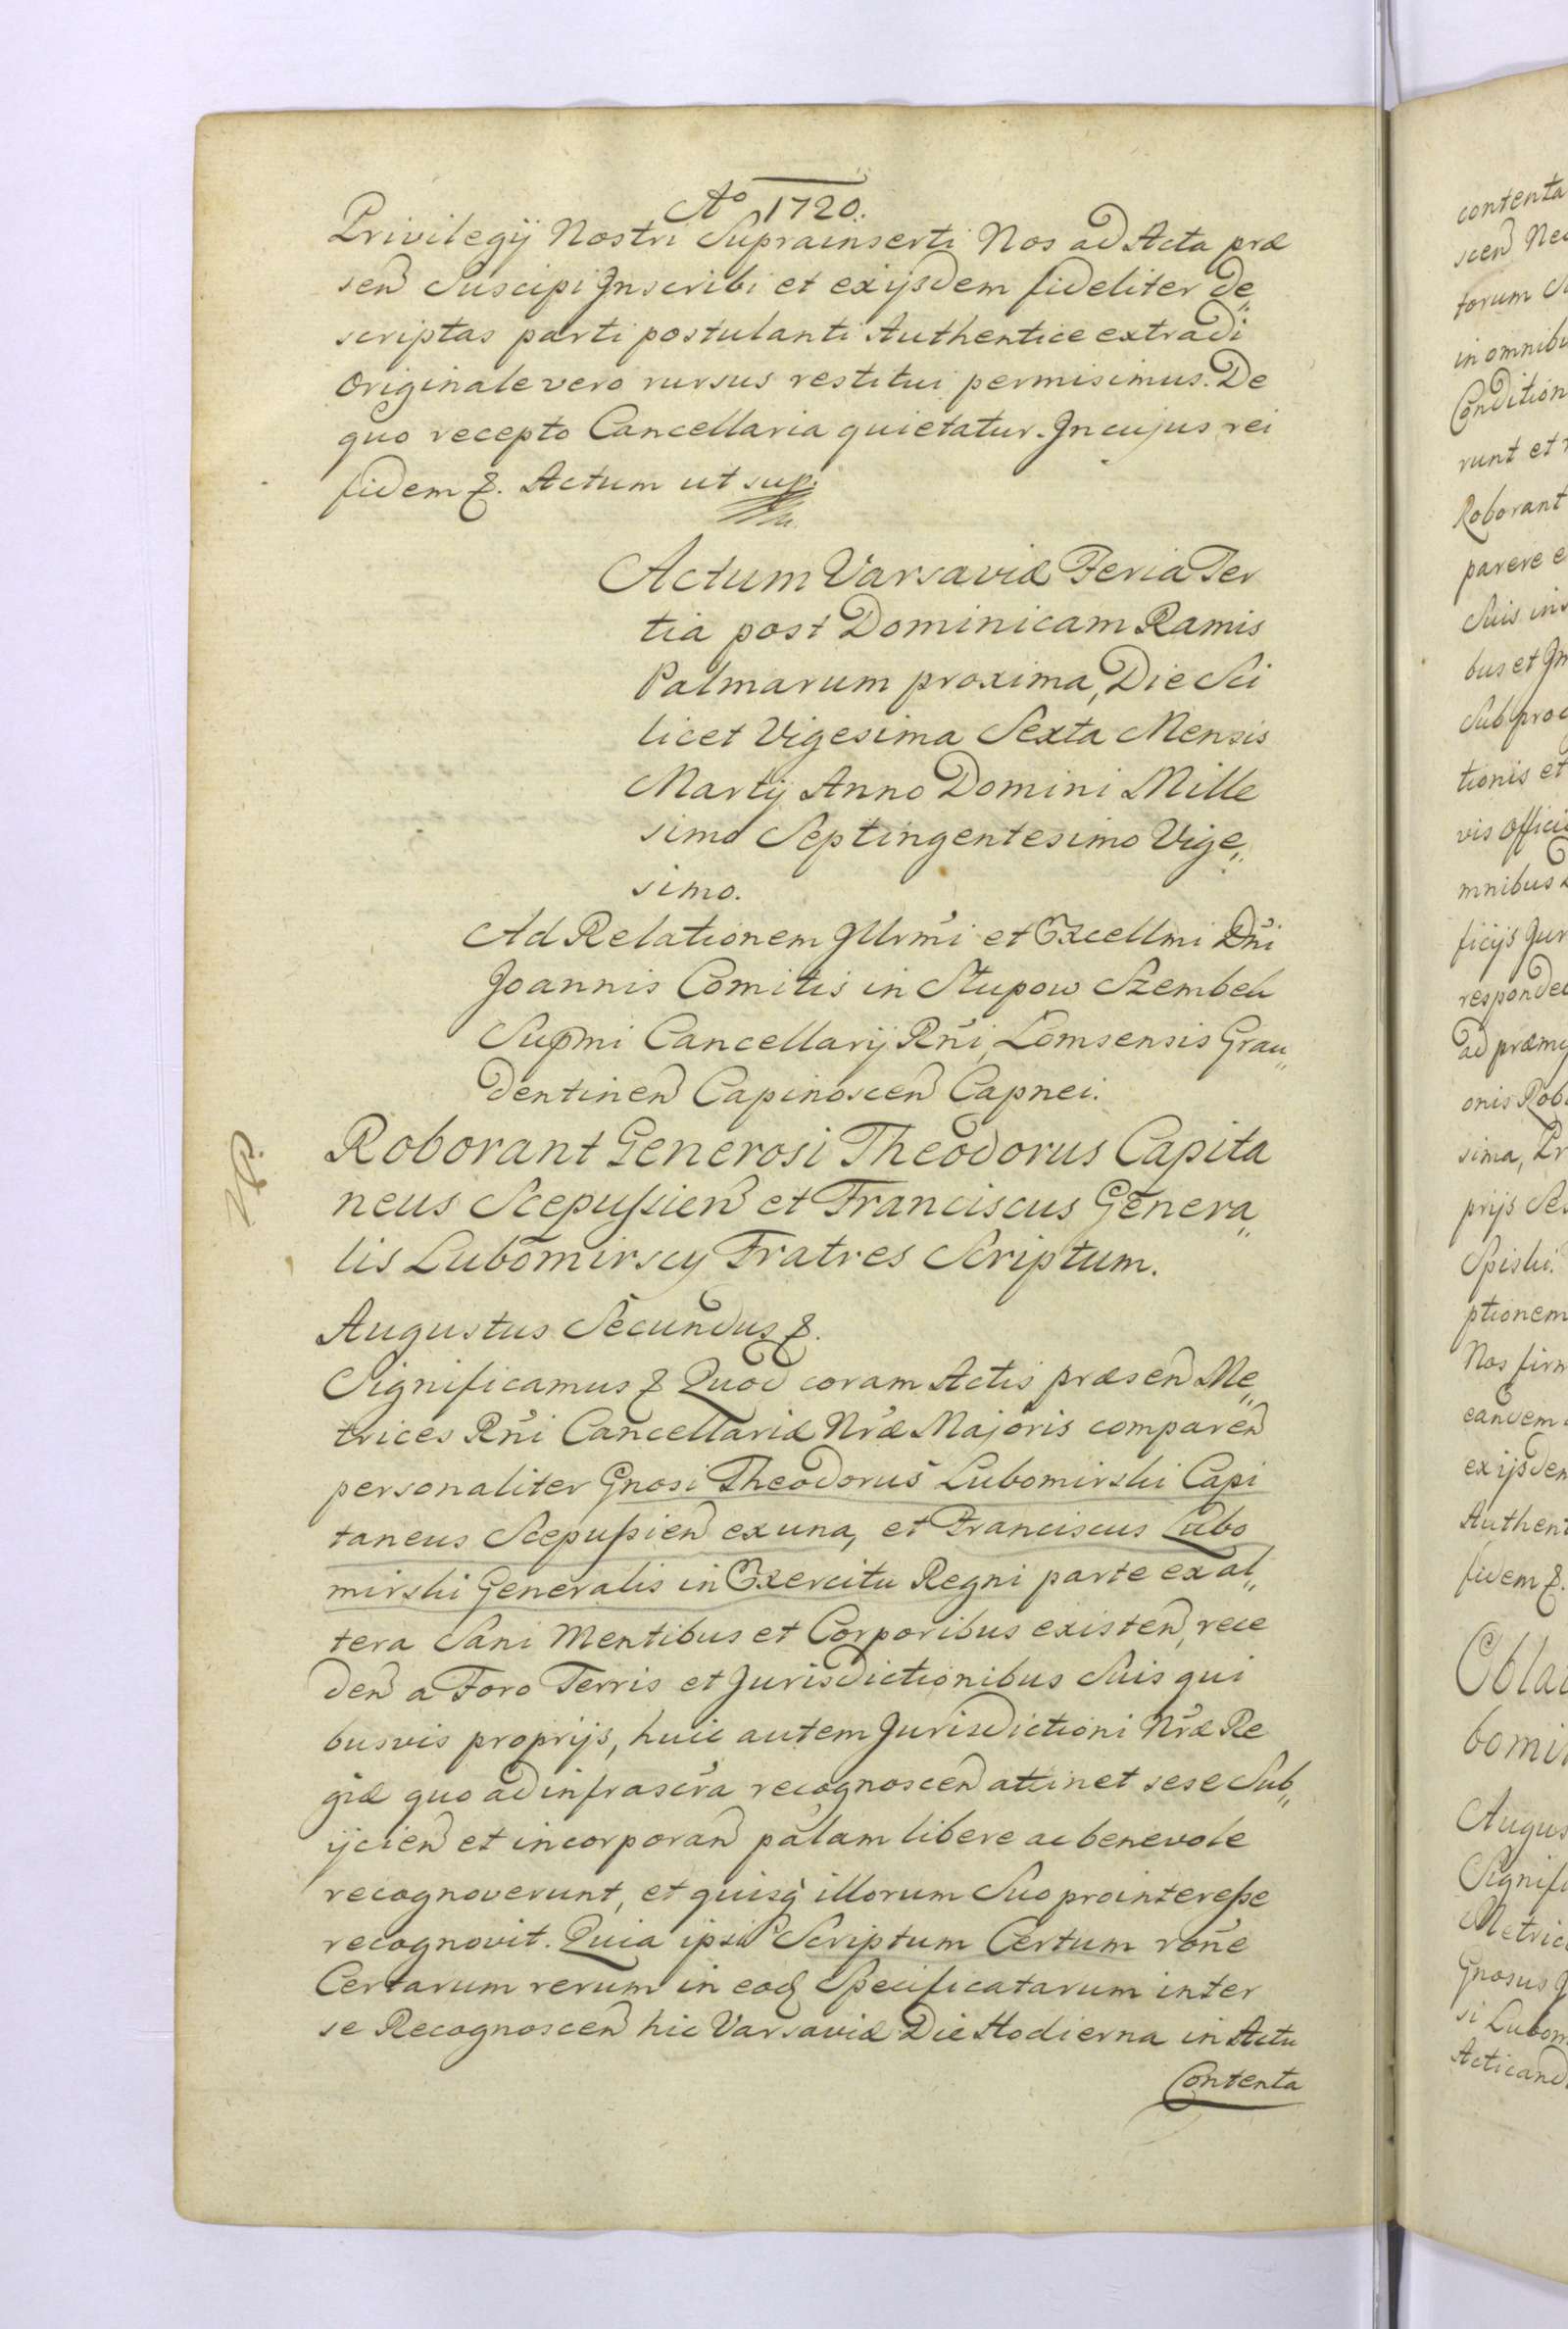 Aº 1720.
Privilegij Nostri Suprainserti Nos ad Acta præ
sen Suscipi Inscribi et ex ijsdem fideliter de„
scriptas parti postulanti Authentice extradi
Originale vero rursus restitui permisimus. De
quo recepto Cancellaria quietatur. In cujus rei
fidem &. Actum ut sup:
Actum Varsaviæ Feria Ter
tia post Dominicam Ramis
Palmarum proxima, Die Sci
licet Vigesima Sexta Mensis
Martij Anno Domini Mille
simo Septingentesimo Vige„
simo.
Ad Relationem Illrmi et Excellmi Dni
Joannis Comitis in Słupow Szembek
Supmi Cancellarij Rni, Lomsensis Grau„
dentinen Capinoscen Capnei.
Roborant Generosi Theodorus Capita
neus Scepussien et Franciscus Genera„
lis Lubomirscy Fratres Scriptum.
Augustus Secundus &.
Significamus & Quod coram Actis præsen Me„
trices Rni Cancellariæ Nræ Majoris comparen
personaliter Gnosi Theodorus Lubomirski Capi
taneus Scepussien ex una, et Franciscus Lubo
mirski Generalis in Exercitu Regni parte ex al„
tera Sani Mentibus et Corporibus existen, rece
den a Foro Terris et Jurisdictionibus Suis qui
busvis proprijs, huic autem Jurisdictioni Nræ Re
giæ quo ad infrascra recognoscen attinet sese Sub„
ijcien et incorporan palam libere ac benevole
recognoverunt, et quisq illorum Suo prointeresse
recognovit. Quia ipsi Scriptum Certum rone
Certarum rerum in eod Specificatarum inter
se Recognoscen hic Varsaviæ Die Hodierna in Actu
Contenta
contenta
scen
torum
in omnibu
Condition
runt et
Roborant
parere e
Suis
bus et
Sub
tionis et
vis offici
mnibus
ficijs Jur
responde
ad præm
onis Rob
sima,
prijs
Spiski.
ptionem
Nos firm
eandem
ex ijsdem
Authent
fidem &.
Obla
bomi
Augus
Signifi
Metric
Gnosus
si Lubom
Acticand